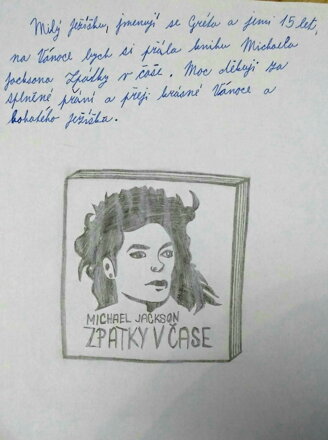 Milý Ježíšku, jmenuji se Gréta a jsem 15 let,
na Vánoce bych si přála knihu Michaela
Jacksona Zpátky v čase. Moc děkuji za
splněné přání a přeji krásné Vánoce a
bohatého Ježíška.
MICHAEL JACKSON
ZPATKY V ČASE